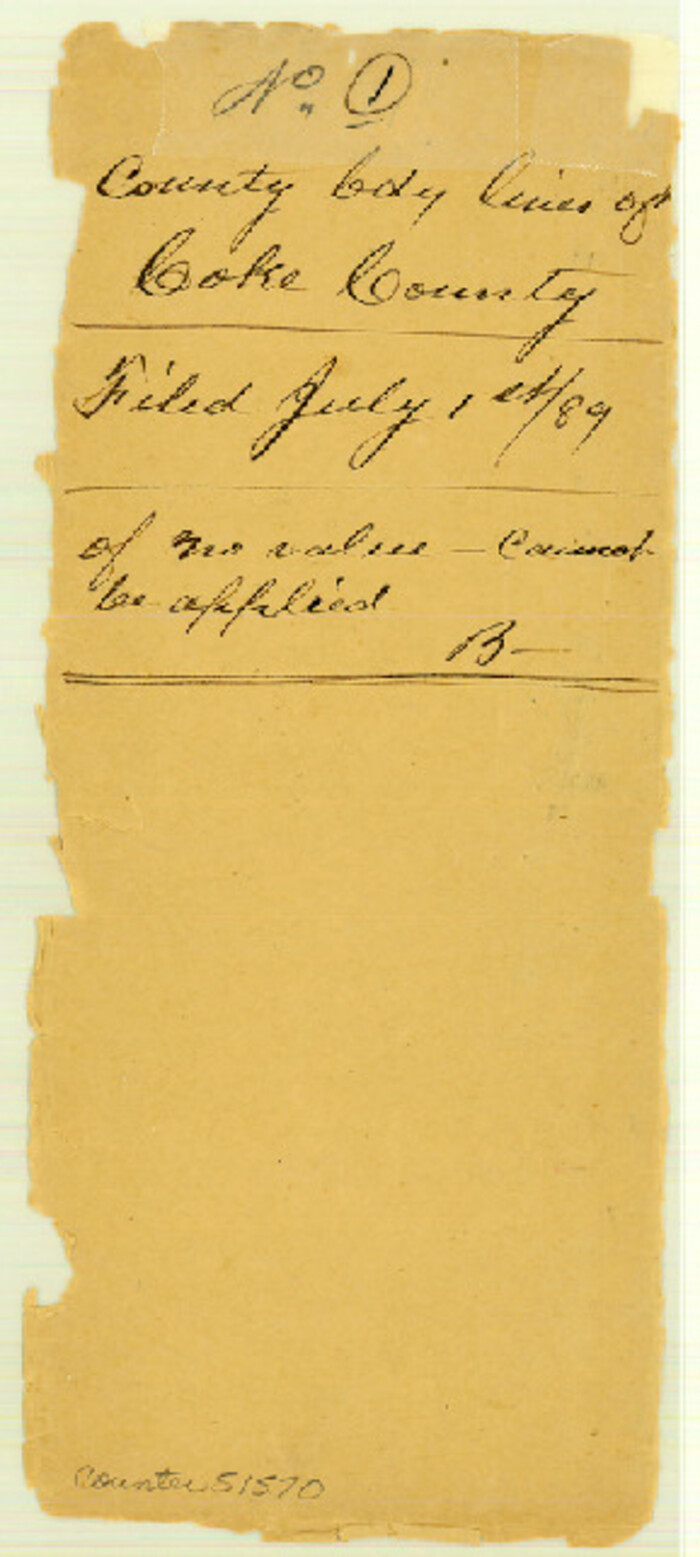 No. 1
County bdy lines of
Coke County
Filed July 1st/89
of no value - Cannot
be applied
B-
Counter 51570